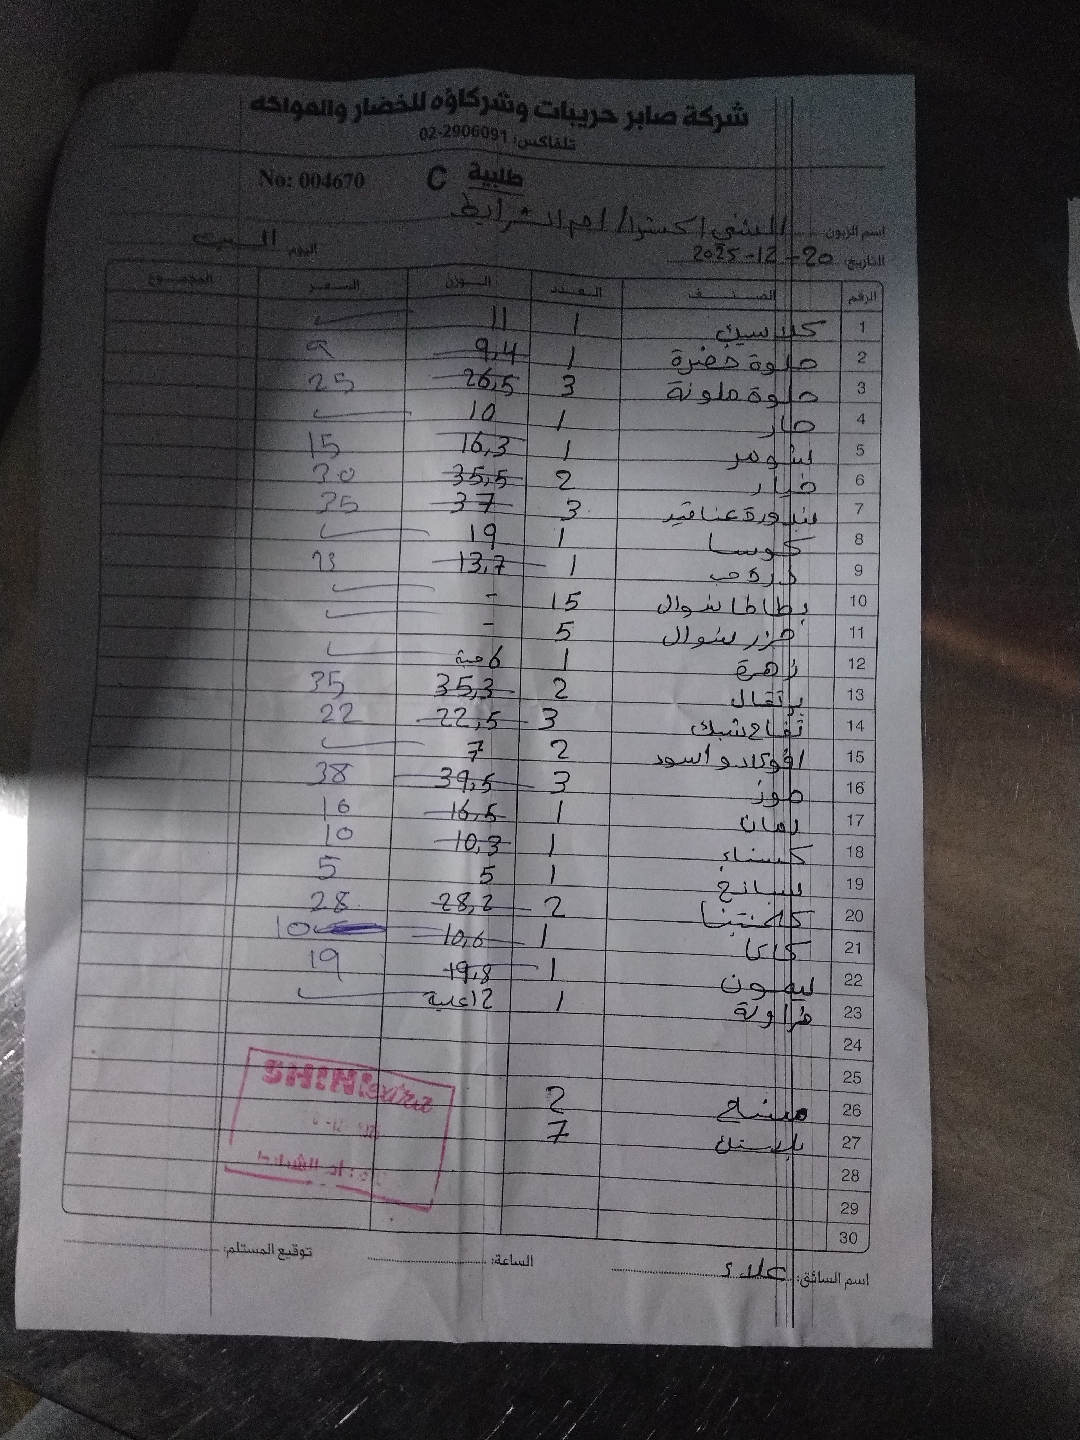 شركة صابر حريبات وشركاؤه للخضار والفواكه
تلفاكس: 02-2906091
طلبية C No: 004670
اسم الزبون الشني اكسترا / ام الشرايط
التاريخ: 20-12-2025 اليوم السبت
الرقم الصنف العدد الوزن السعر المجموع
1 كلاسيك 1 11
2 حلوة خضرة 1 9,4 9
3 حلوة ملونة 3 26,5 25
4 حار 1 10
5 شومر 1 16,3 15
6 خيار 2 35,5 30
7 بندورة عناقيد 3 37 35
8 كوسا 1 19
9 درة حب 1 13,7 13
10 بطاطا شوال 15 -
11 جزر شوال 5 -
12 زهرة 1 6 حبة
13 برتقال 2 35,3 35
14 تفاح شبك 3 22,5 22
15 افوكادو أسود 2 7
16 موز 3 39,5 38
17 رمان 1 16,5 16
18 كستناء 1 10,3 10
19 سبانخ 1 5 5
20 كلمنتينا 2 28,2 28
21 كاكا 1 10,6 10
22 ليمون 1 19,8 19
23 فراولة 1 12 علبة
24
25
26 مشتاح 2
27 بلاستك 7
28
29
30
SHINI extra
اسم السائق: علاء الساعة: توقيع المستلم: